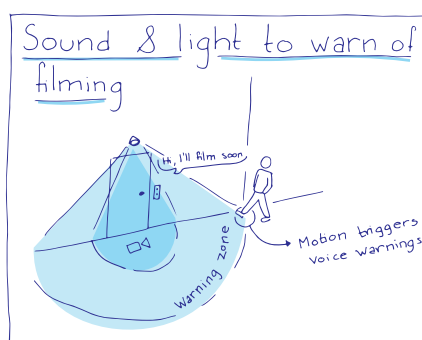 Sound & light to warn of
filming
Hi, I'll film soon
Warning zone
Motion triggers
voice warnings